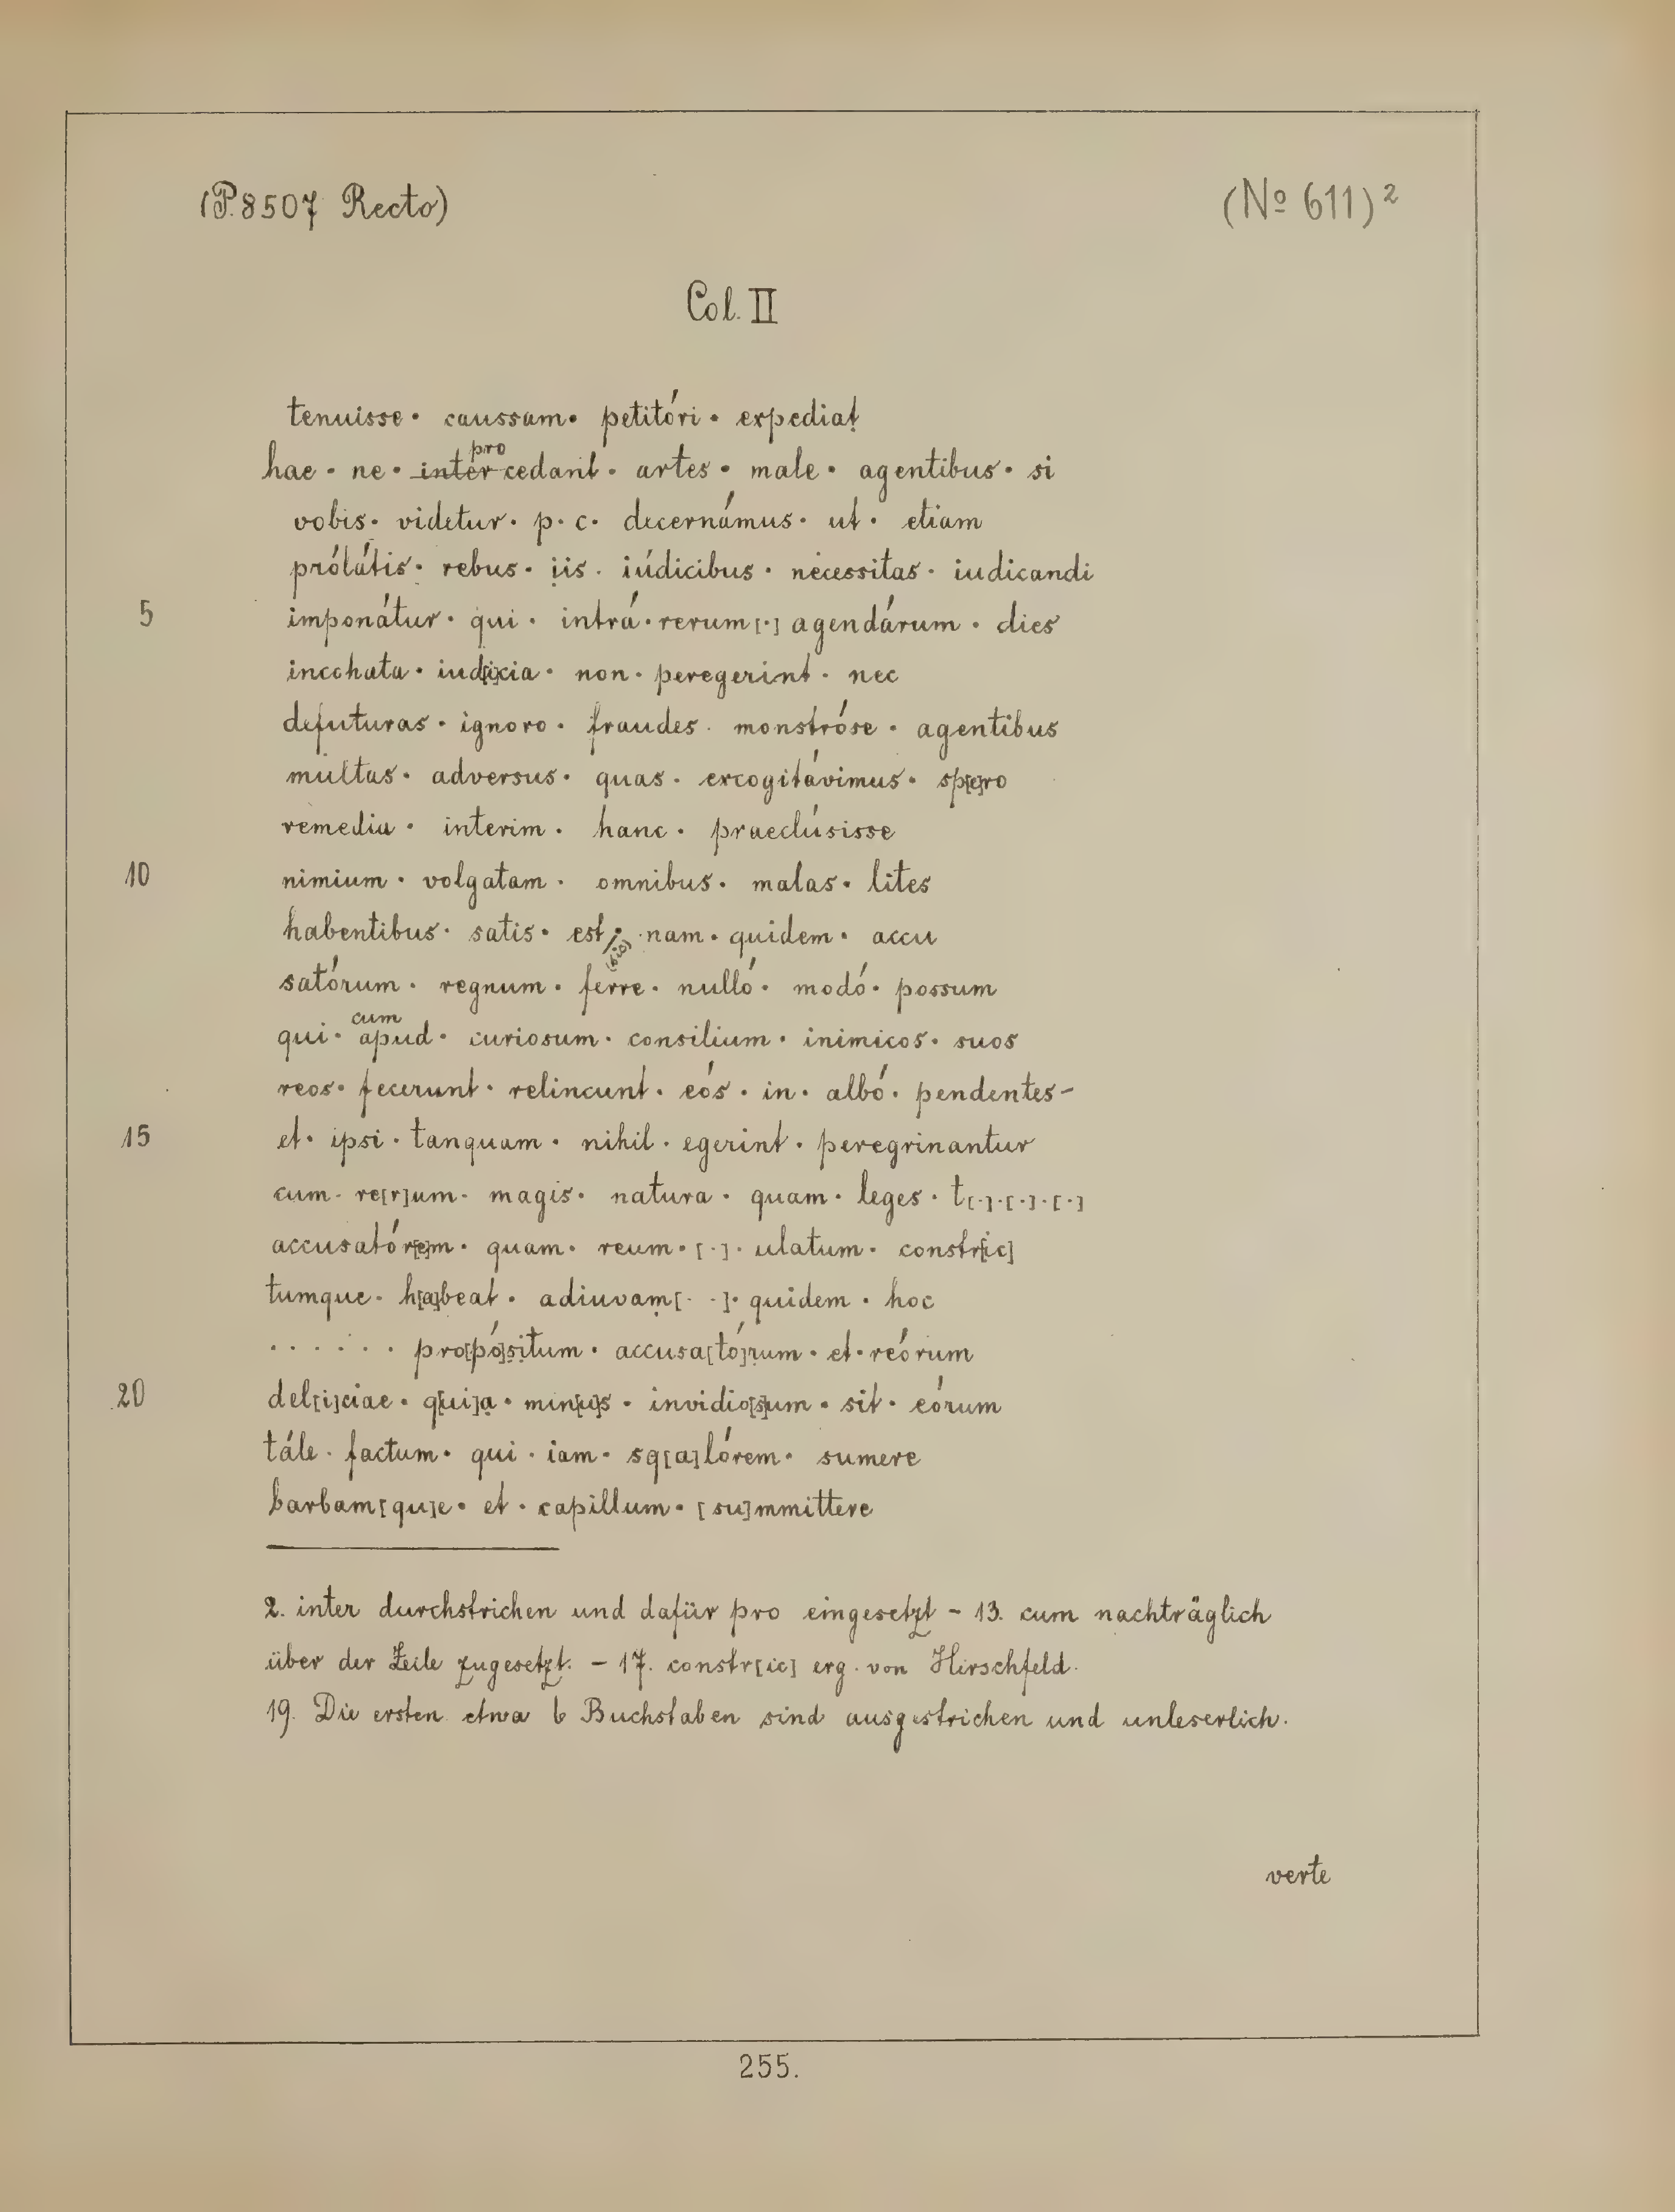 (P. 8507 Recto)
(Nº 611)²
Col. II
tenuisse · caussam · petitóri · expediaṭ
pro
hae · ne · inter cedant · artes · male · agentibus · si
vobis · videtur · p · c · decernámus · ut · etiam
prólátis · rebus · ịis · iúdicibus · necessitas · iudicandi
5 imponátur · qui · intrá · rerum[·] agendárum · dies
incohata · iud[i]cia · non · peregerint · nec
defuturas · ignoro · fraudes · monstróse · agentibus
multas · adversus · quas · excogitávimus · sp[e]ro
remedia · interim · hanc · praeclúsisse
10 nimium · volgatam · omnibus · malas · lites
habentibus · satis · est / (sic) · nam · quidem · accu
satórum · regnum · ferre · nulló · modó · possum
cum
qui · apud · curiosum · consilium · inimicos · suos
reos · fecerunt · relincunt · eós · in · albó · pendentes -
15 et · ipsi · tanquam · nihil · egerint · peregrinantur
cum · re[r]um · magis · natura · quam · leges · t[·]·[·]·[·]
accusatór[e]m · quam · reum · [·] · ulatum · constr[ic]
tumque · h[a]beat · adiuvaṃ[· ·]· quidem · hoc
· · · · · · pro[pó]ṣịtum · accusa[tó]ṛum · et · reórum
20 del[i]ciae · q[ui]ạ · min[u]s · invidio[s]um · sit · eórum
tále · factum · qui · iam · sq[a]lórem · sumere
barbam[qu]e · et · capillum · [su]mmittere
2. inter durchstrichen und dafür pro eingesetzt - 13. cum nachträglich
über der Zeile zugesetzt. - 17. constr[ic] erg. von Hirschfeld.
19. Die ersten etwa 6 Buchstaben sind ausgestrichen und unleserlich.
verte
255.